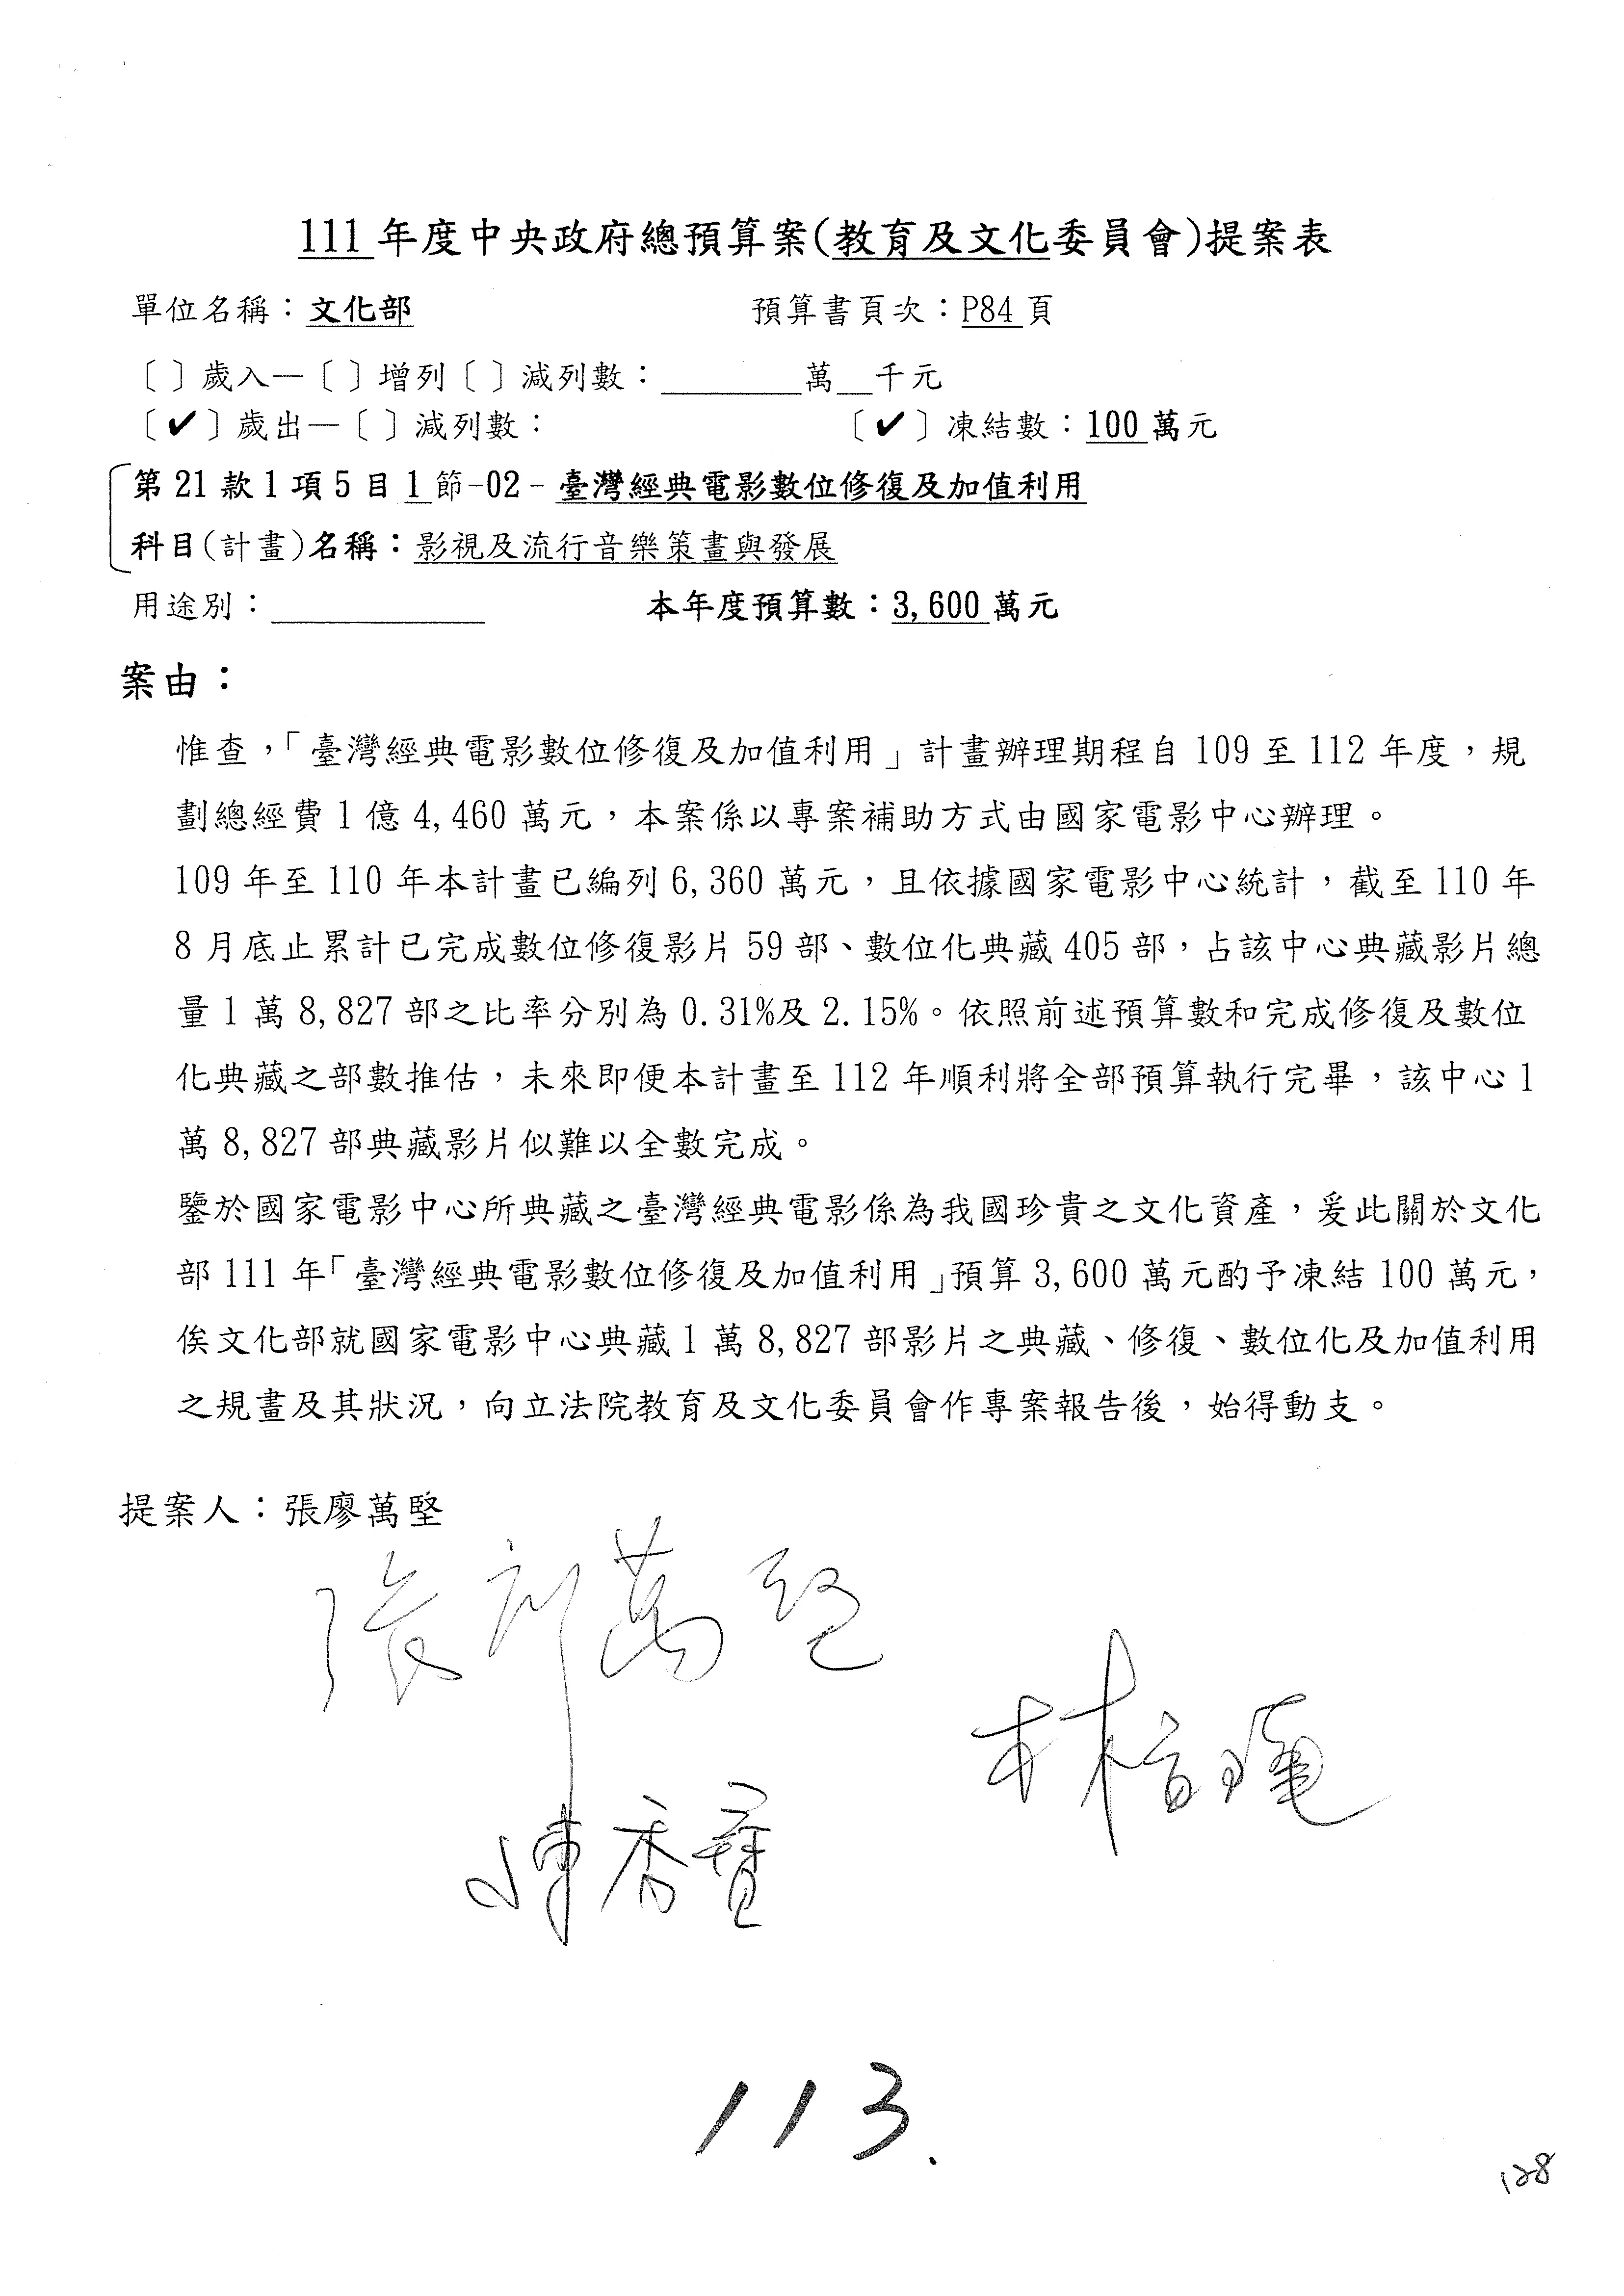 111年度中央政府總預算案(教育及文化委員會)提案表
單位名稱：文化部 預算書頁次：P84頁
〔 〕歲入—〔 〕增列〔 〕減列數：________萬__千元
〔✔〕歲出—〔 〕減列數： 〔✔〕凍結數：100萬元
第21款1項5目1節-02-臺灣經典電影數位修復及加值利用
科目(計畫)名稱：影視及流行音樂策畫與發展
用途別：____________ 本年度預算數：3,600萬元
案由：
惟查，「臺灣經典電影數位修復及加值利用」計畫辦理期程自109至112年度，規
劃總經費1億4,460萬元，本案係以專案補助方式由國家電影中心辦理。
109年至110年本計畫已編列6,360萬元，且依據國家電影中心統計，截至110年
8月底止累計已完成數位修復影片59部、數位化典藏405部，占該中心典藏影片總
量1萬8,827部之比率分別為0.31%及2.15%。依照前述預算數和完成修復及數位
化典藏之部數推估，未來即便本計畫至112年順利將全部預算執行完畢，該中心1
萬8,827部典藏影片似難以全數完成。
鑒於國家電影中心所典藏之臺灣經典電影係為我國珍貴之文化資產，爰此關於文化
部111年「臺灣經典電影數位修復及加值利用」預算3,600萬元酌予凍結100萬元，
俟文化部就國家電影中心典藏1萬8,827部影片之典藏、修復、數位化及加值利用
之規畫及其狀況，向立法院教育及文化委員會作專案報告後，始得動支。
提案人：張廖萬堅
張廖萬堅
陳秀寳
113.
128